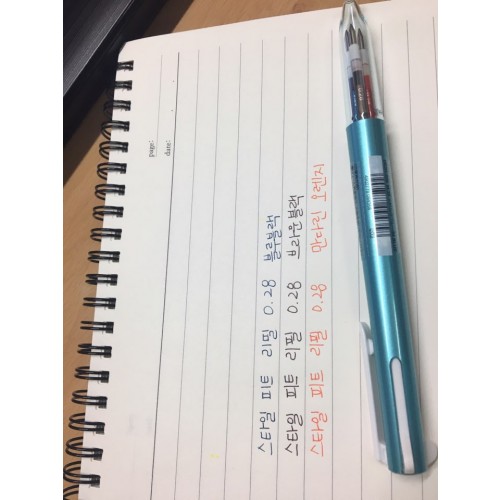 page:
date:
스타일 피트 리필 0.28 블루블랙
스타일 피트 리필 0.28 브라운블랙
스타일 피트 리필 0.28 만다린 오렌지